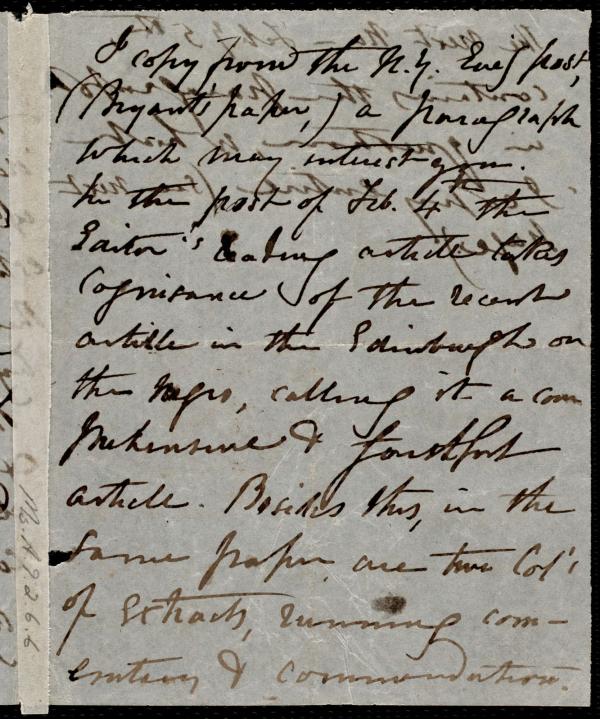 I copy from the N.Y. Eve'g post,
(Bryant's paper,) a paragraph
which may interest you.
In the post of Feb. 4th the
Editor's leading article takes
Cognisance of the recent
article in the Edinburgh on
the Negro, calling it a com
prehensive &
article. Besides this, in the
same paper, are two Col's
of Extracts, running com-
entary & commendation.
Ms. A.9.2.6.6